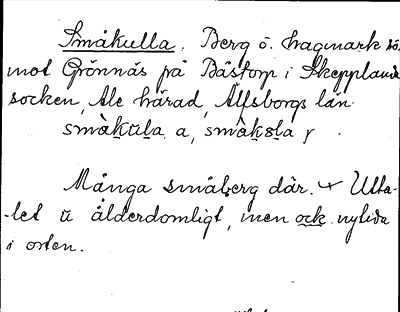 Småkulla. Berg ö. hagmark sö.
mot Grönnäs på Båstorp i Skepplanda
socken, Ale härad, Älfsborgs län.
småkūla a, småkəla y.
Många småberg där. + Utta-
-let ū ålderdomligt, men ock nytida
i orten.